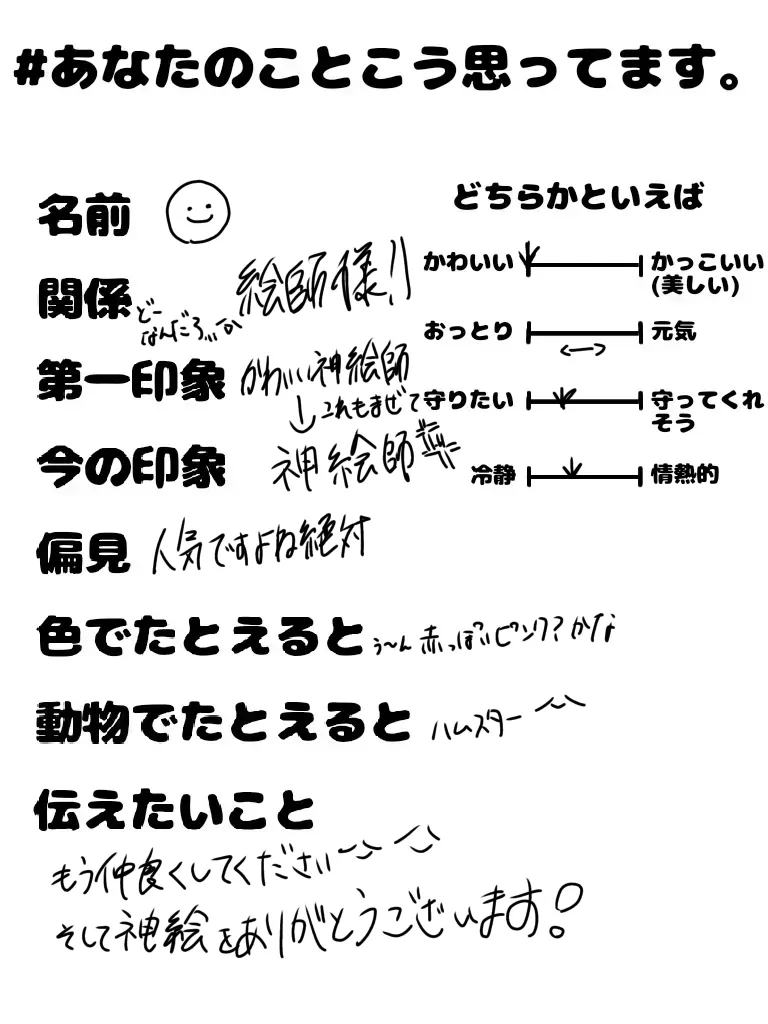 #あなたのことこう思ってます。
名前
関係 どーなんだろ...か 絵師様!!
第一印象 かわいい神絵師
↓これもまぜて
今の印象 神絵師
偏見 人気ですよね絶対
色でたとえると う〜ん赤っぽいピンク?かな
動物でたとえると ハムスター
伝えたいこと
もう仲良くしてください
そして神絵をありがとうございます!
どちらかといえば
かわいい かっこいい
(美しい)
おっとり 元気
守りたい 守ってくれ
そう
冷静 情熱的